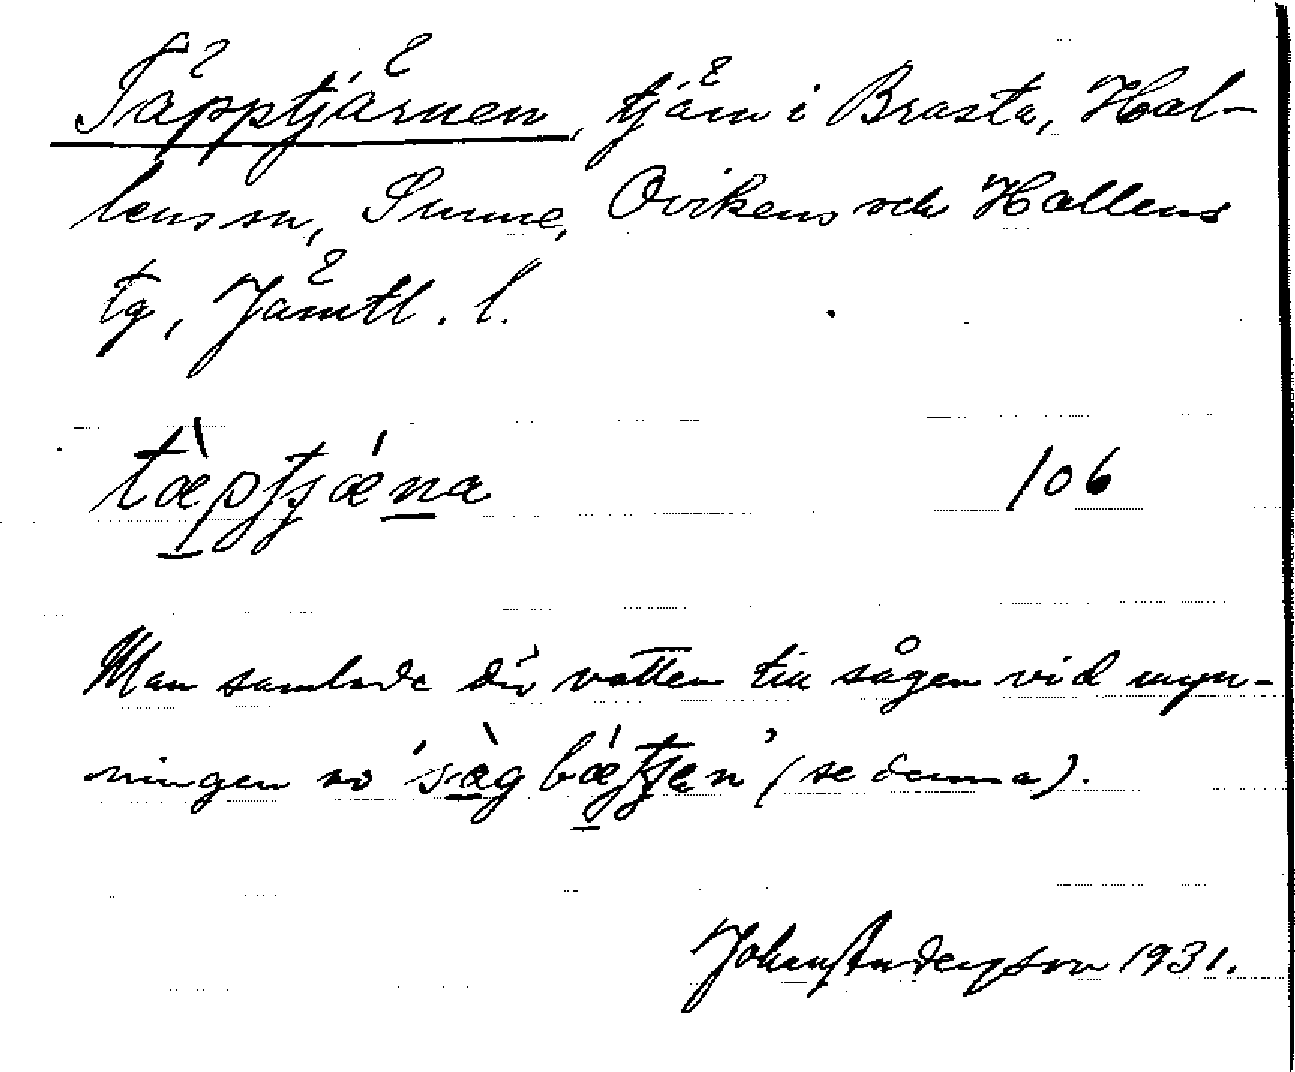 Täpptjärnen, tjärn i Brasta, Hal-
lens sn, Sunne, Ovikens och Hallens
tg, Jämtl. l.
tæ̀ptjǽna 106
Man samlade där vatten till sågen vid myn-
ningen av 'sàg bǽttjen' (se denna).
Johan Andersson 1931.